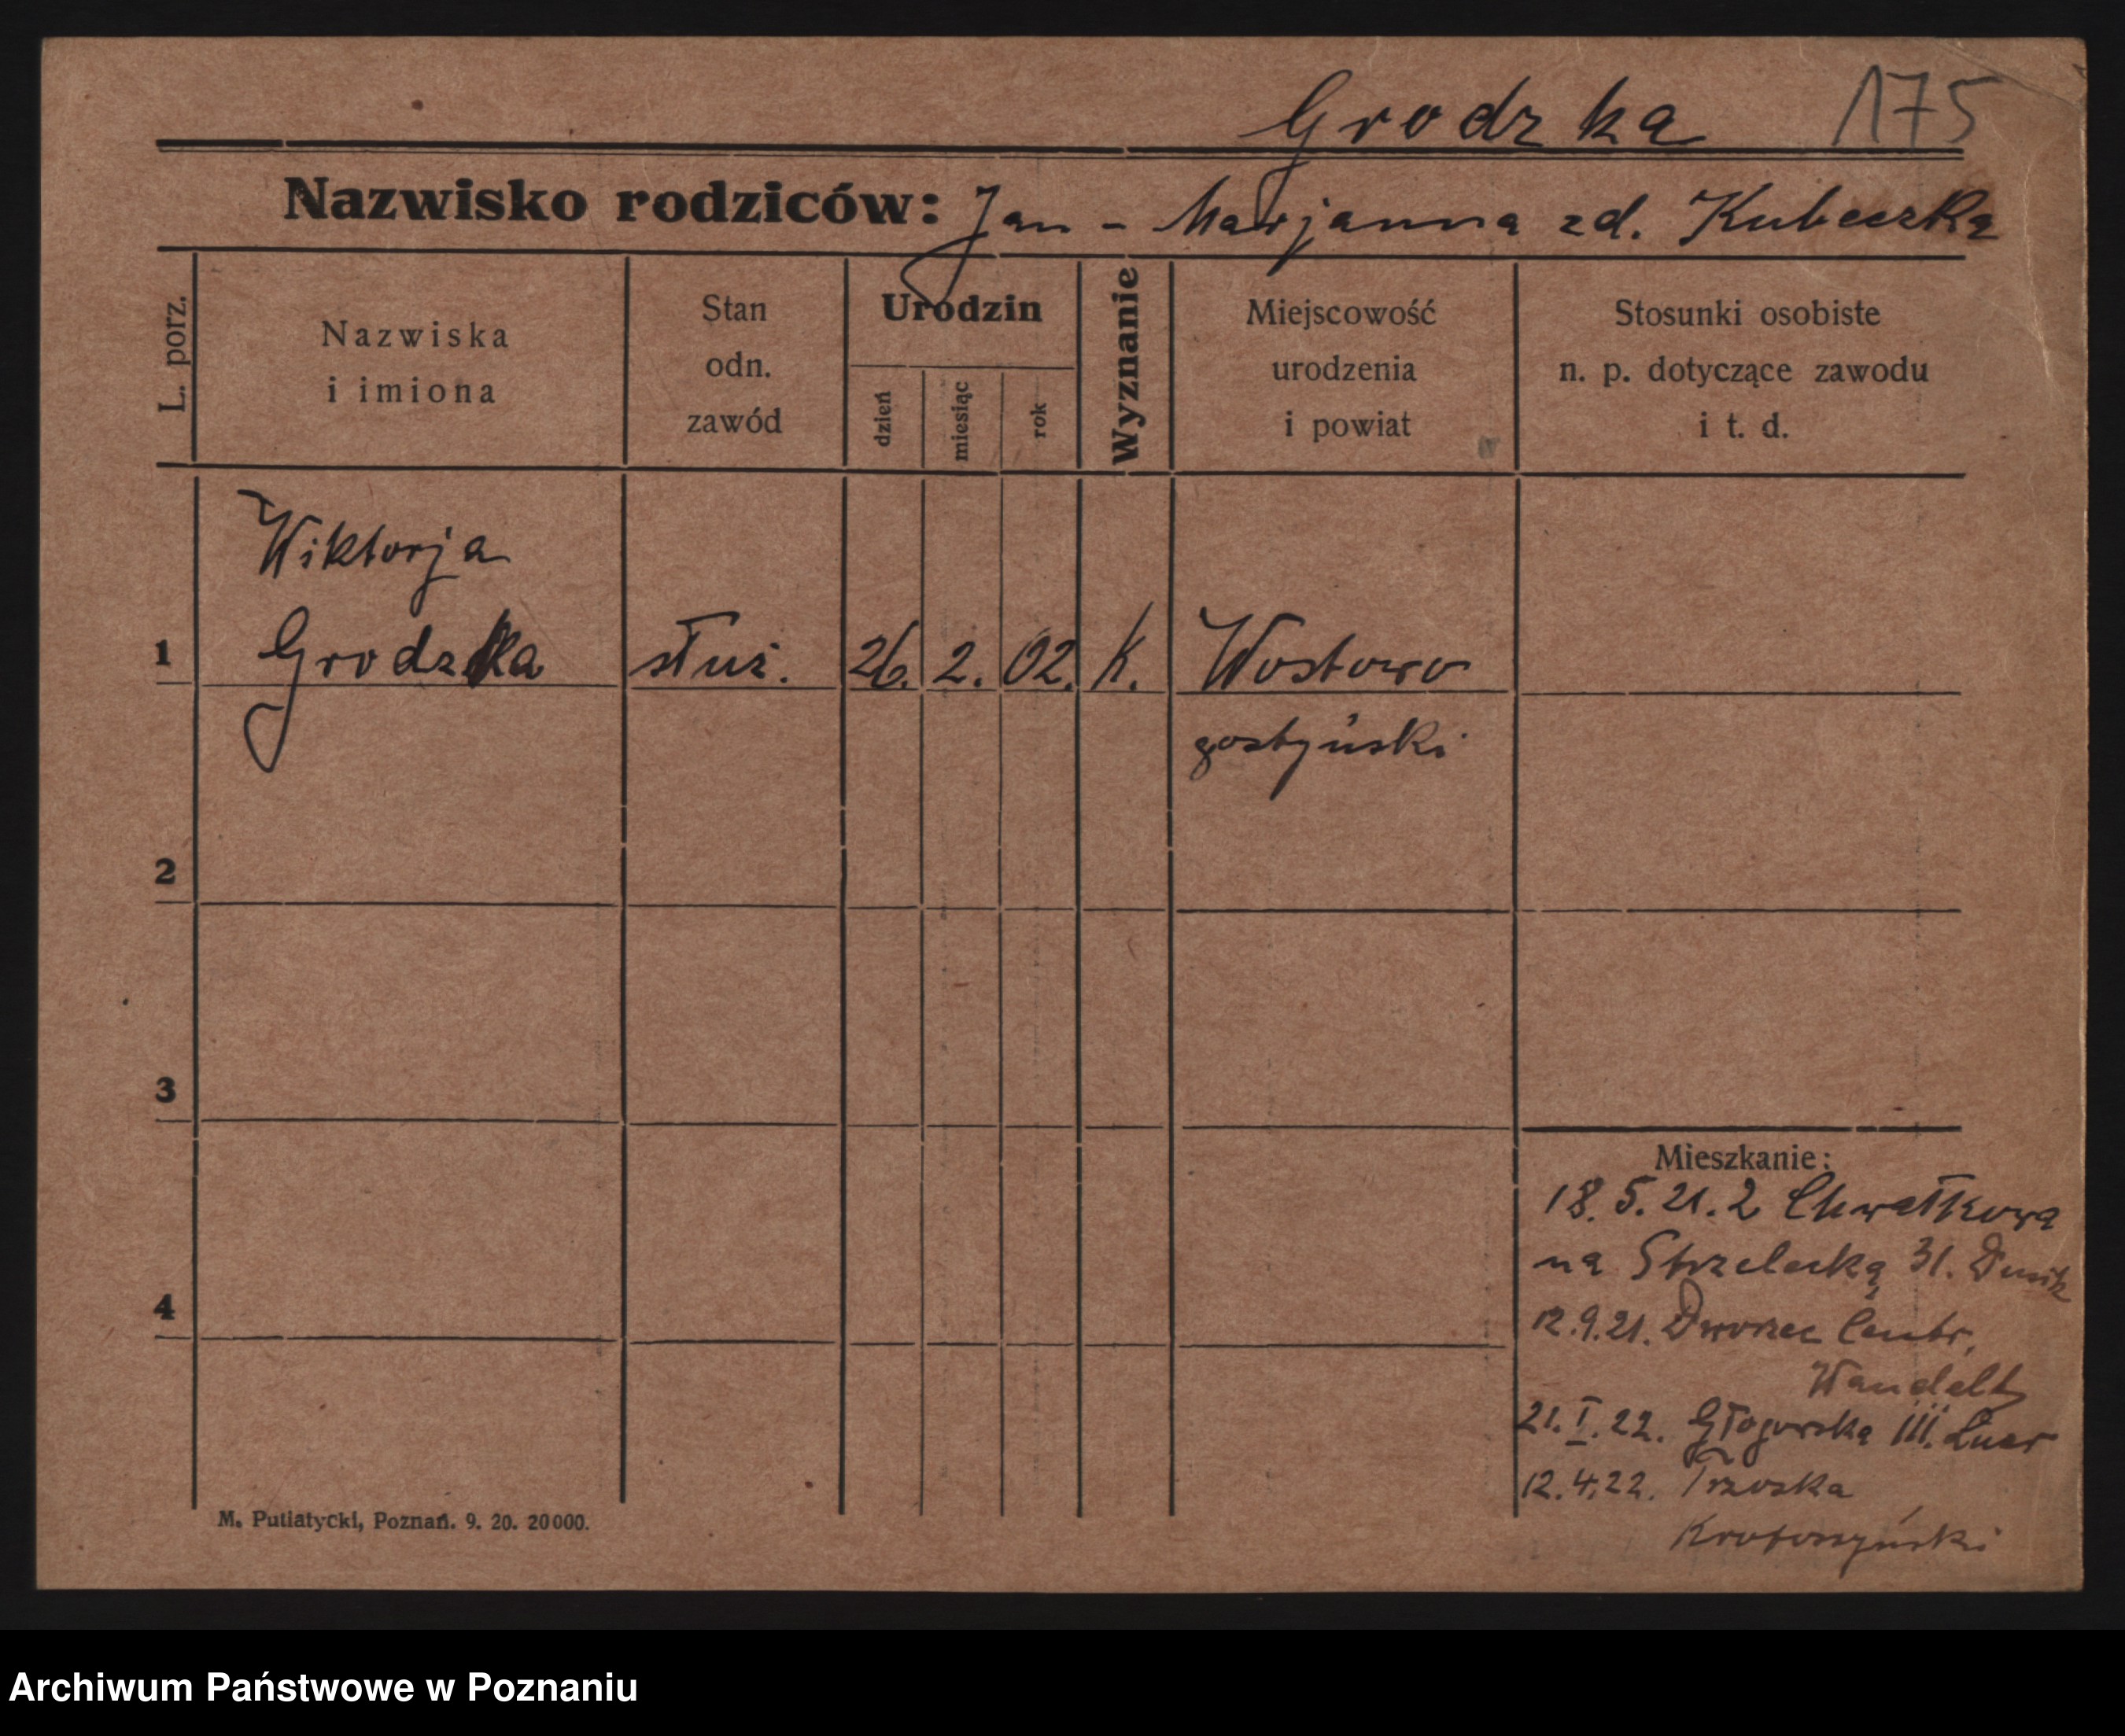 Grodzka 175
Nazwisko rodziców: Jan - Marjanna zd. Kubeczka
L. porz.
Nazwiska
i imiona
Stan
odn.
zawód
Urodzin
dzień
miesiąc
rok
Wyznanie
Miejscowość
urodzenia
i powiat
Stosunki osobiste
n. p. dotyczące zawodu
i t. d.
Wiktorja
1 Grodzka służ. 26. 2. 02. K. Wostowo
gostyński
2
3
4
Mieszkanie:
18. 5. 21. 2 Chwałkowa
na Strzelecką 31.
12.9.21. Dworzec Centr.
Wandelt
21. I. 22. Głogowska III.
12.4.22. Trzoska
Krotoszyński
M. Putiatycki, Poznań. 9. 20. 20000.
Archiwum Państwowe w Poznaniu